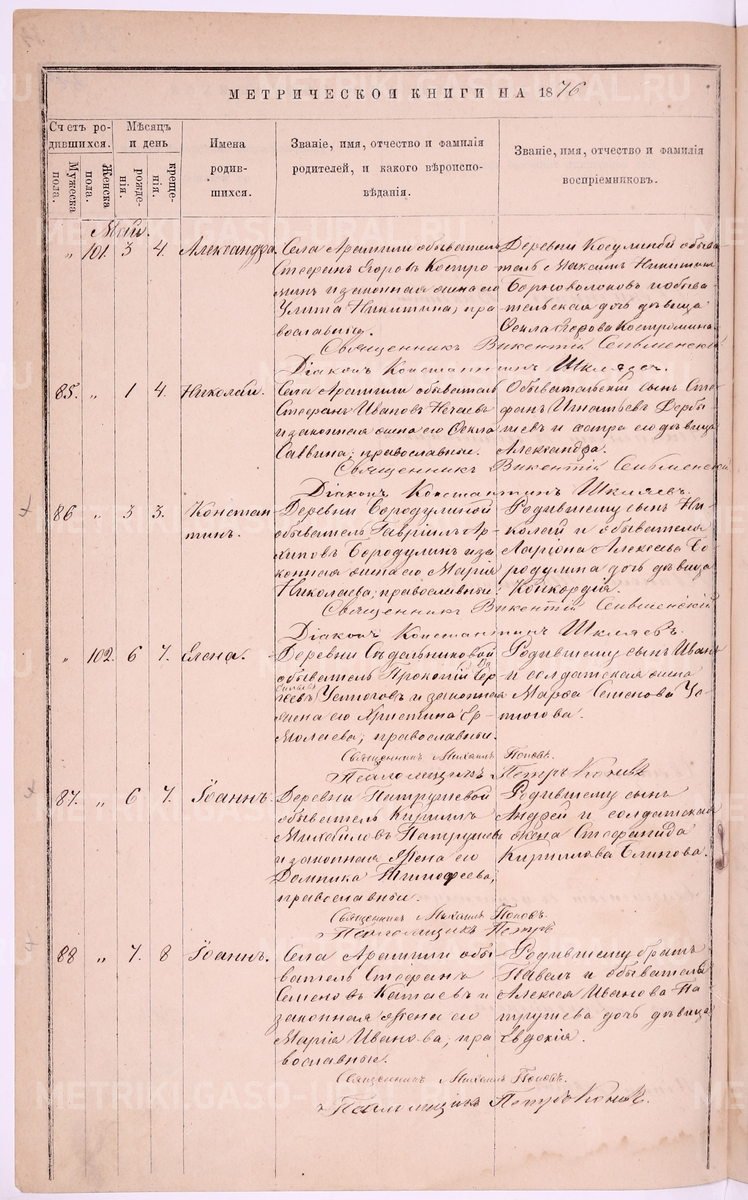 МЕТРИЧЕСКОЙ КНИГИ НА 1876
Счетъ родившихся.
Мужеска пола.
Женска пола.
Мѣсяцъ и день
рожденія.
крещенія.
Имена родившихся.
Званіе, имя, отчество и фамилія родителей, и какого вѣроисповѣданія.
Званіе, имя, отчество и фамилія воспріемниковъ.
Май.
„ 101. 3 4. Александра.
Села Арамили обыватель
Стефанъ Егоровъ Костро
минъ и законная жена его
Улита Никитина, пра
вославные.
Деревни Косулиной обыва
тель Максимъ Никитинъ
Барховолоковъ и обыва
тельская дочь дѣвица
Фекла Егорова Костромина.
Священникъ Викентій
Діаконъ Константинъ Шкляевъ.
85. „ 1 4. Николай.
Села Арамили обыватель
Стефанъ Ивановъ Нечаевъ
и законная жена его Фекла
Саввина; православные.
Обывательскій сынъ Сте
фанъ Игнатьевъ Дербы
шевъ и сестра его дѣвица
Александра.
Священникъ Викентій
Діаконъ Константинъ Шкляевъ.
86 „ 3 3. Констан
тинъ.
Деревни Бородулиной
обыватель Гавріилъ Ар
хиповъ Бородулинъ и за
конная жена его Марія
Николаева; православные.
Родившему сынъ Ни
колай и обывателя
Ларіона Алексѣева Бо
родулина дочь дѣвица
Конкордія.
Священникъ Викентій
Діаконъ Константинъ Шкляевъ.
„ 102. 6 7. Елена.
Деревни Сѣдельниковой
обыватель Прокопій Сер
гѣевъ Устюговъ и законная
жена его Христина Ер
молаева; православные.
Родившему сынъ Иванъ
и солдатская жена
Марѳа Семенова Ус
тюгова.
Священникъ Михаилъ Поповъ.
Псаломщикъ Петръ
87. „ 6 7. Іоаннъ.
Деревни Патрушевой
обыватель Кириллъ
Михайловъ Патрушевъ
и законная жена его
Домника Тимофеева,
православные.
Родившему сынъ
Андрей и солдатская
жена Стефанида
Кирилова Блинова.
Священникъ Михаилъ Поповъ.
Псаломщикъ Петръ
88 „ 7. 8 Іоаннъ.
Села Арамили обы
ватель Стефанъ
Семеновъ Катаевъ и
законная жена его
Марія Иванова; пра
вославные.
Родившему братъ
Павелъ и обывателя
Алексѣя Иванова Па
трушева дочь дѣвица
Евдокія.
Священникъ Михаилъ Поповъ.
Псаломщикъ Петръ
METRIKI.GASO-URAL.RU